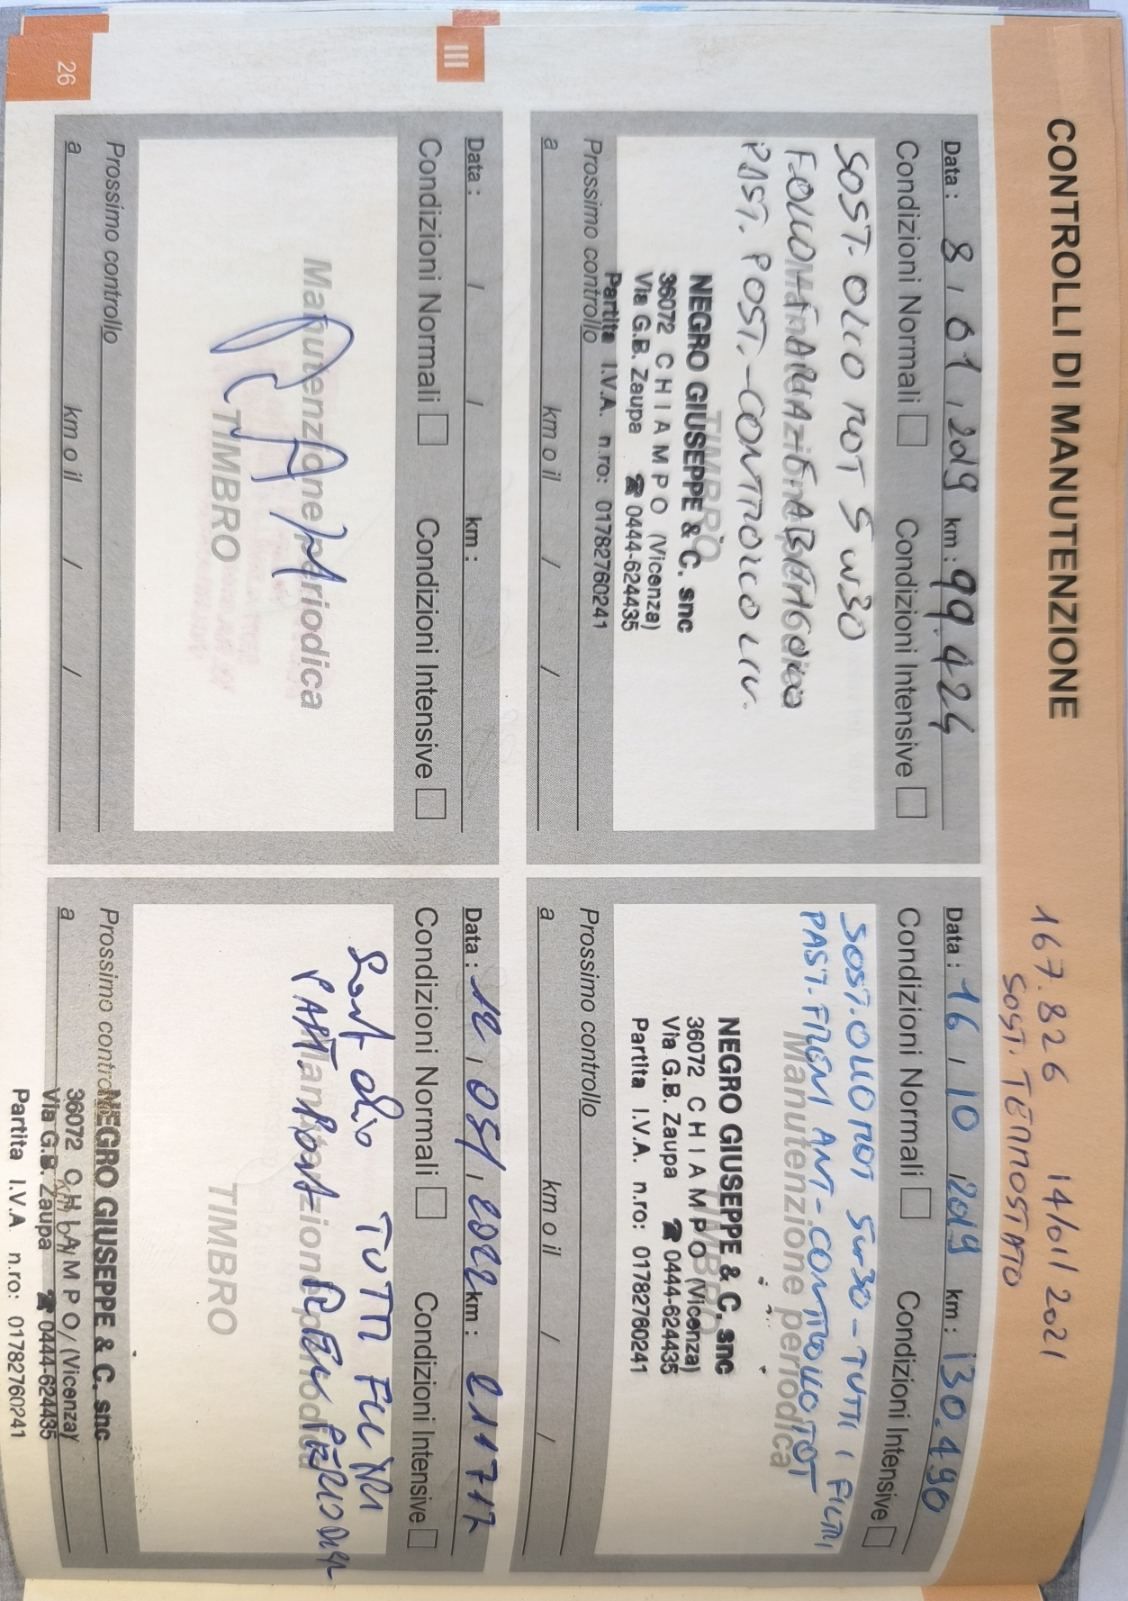 CONTROLLI DI MANUTENZIONE
167.826 14/01/2021
SOST. TERMOSTATO
Data: 8/01/2019 km: 99.424
Condizioni Normali Condizioni Intensive
SOST. OLIO MOT 5W30
Manutenzione periodica
PAST. POST. - CONTROLLO LIV.
TIMBRO
NEGRO GIUSEPPE & C. snc
36072 CHIAMPO (Vicenza)
Via G.B. Zaupa ☎ 0444-624435
Partita I.V.A. n.ro: 01782760241
Prossimo controllo
a km o il / /
Data: 16/10/2019 km: 130.490
Condizioni Normali Condizioni Intensive
SOST. OLIO MOT 5W30 - TUTTI I FILTRI
PAST. FRENI ANT - CONTROLLO TOT
Manutenzione periodica
TIMBRO
NEGRO GIUSEPPE & C. snc
36072 CHIAMPO (Vicenza)
Via G.B. Zaupa ☎ 0444-624435
Partita I.V.A. n.ro: 01782760241
Prossimo controllo
a km o il / /
III
Data: / / km:
Condizioni Normali Condizioni Intensive
Manutenzione periodica
TIMBRO
Prossimo controllo
a km o il / /
26
Data: 12/05/2022 km: 211712
Condizioni Normali Condizioni Intensive
Sost olio TUTTI FILTRI
PAST. Post
Manutenzione periodica
TIMBRO
Prossimo controllo
NEGRO GIUSEPPE & C. snc
a km o il / /
36072 CHIAMPO (Vicenza)
Via G.B. Zaupa ☎ 0444-624435
Partita I.V.A n.ro: 01782760241